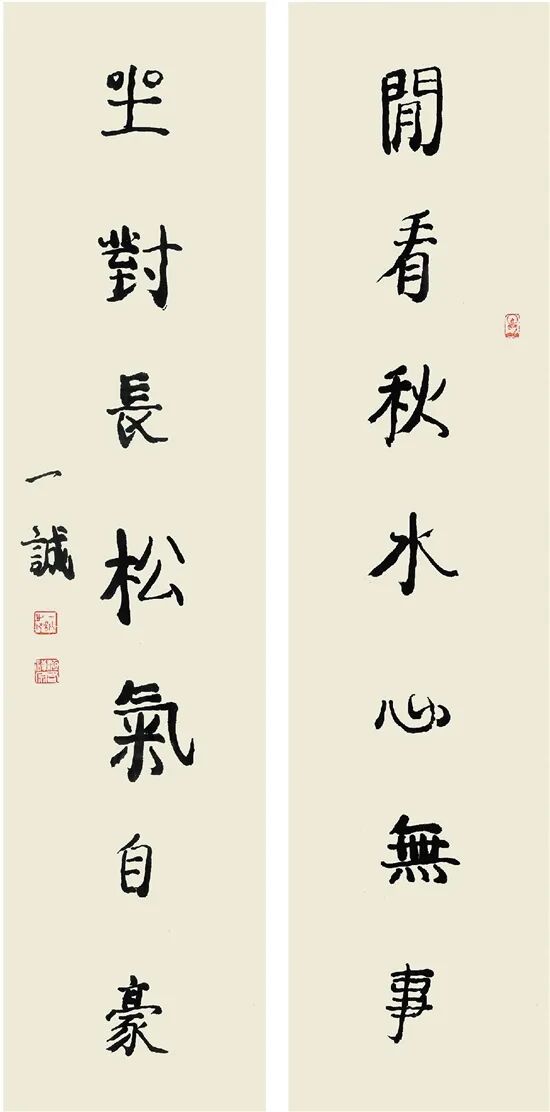 閒看秋水心無事
坐對長松氣自豪
一誠